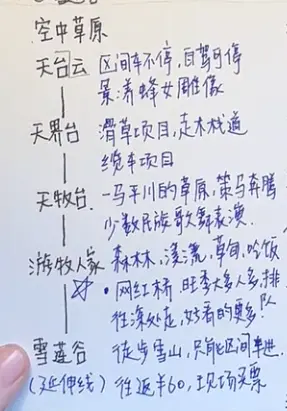 空中草原
天台云 区间车不停,自驾可停
景:养蜂女雕像
天界台 滑草项目,走木栈道
缆车项目
天牧台 一马平川的草原,策马奔腾
少数民族歌舞表演.
游牧人家 森林,溪流,草甸,吃饭
☆ • 网红桥,旺季人多人多,排队
往深处走,好看的更多!
雪莲谷 徒步雪山,只能区间车进.
(延伸线) 往返羊60,现场买票